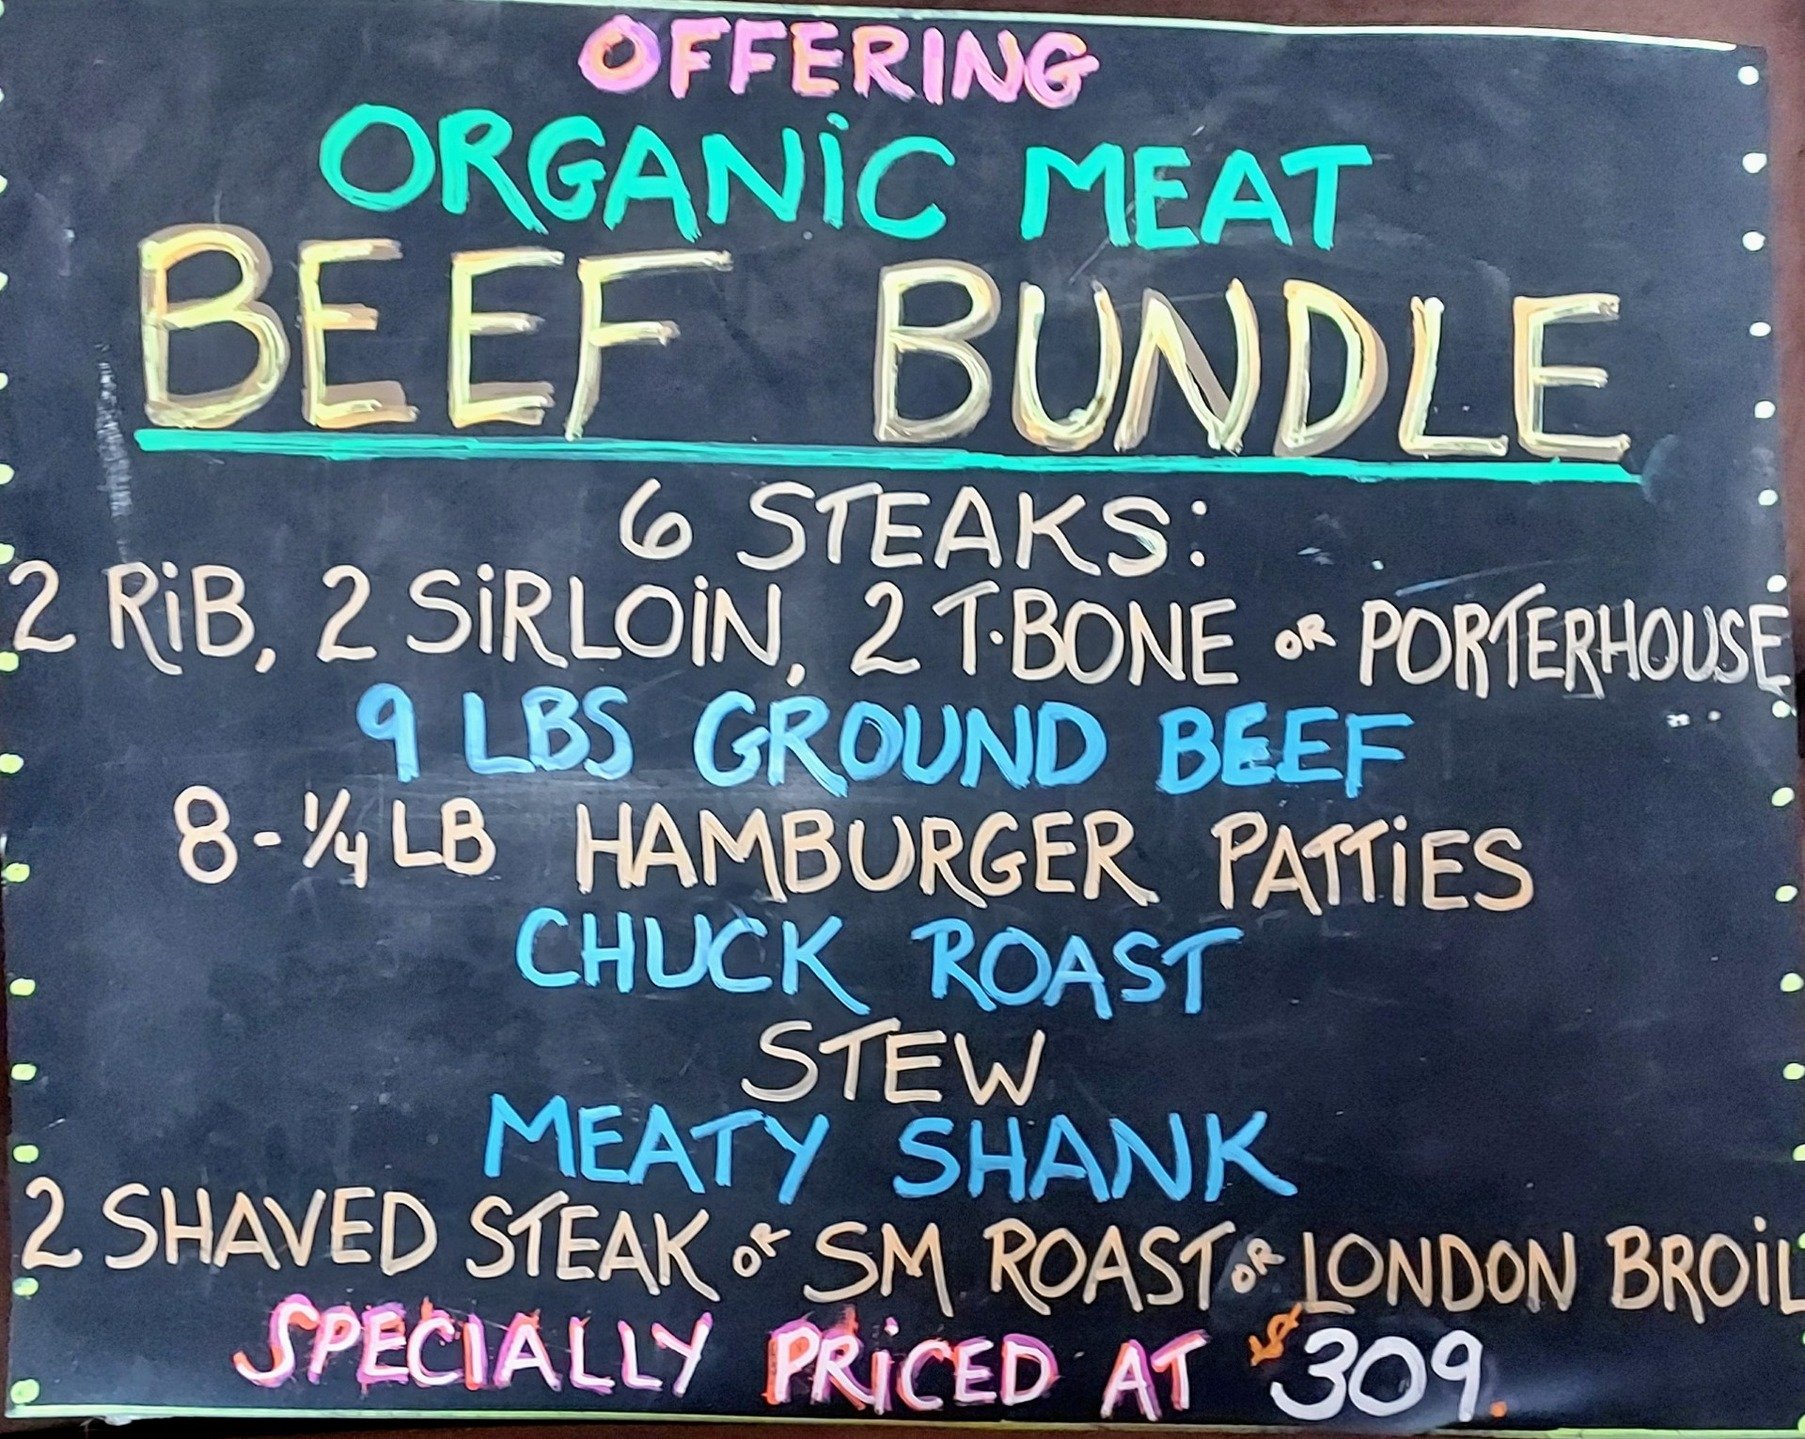 OFFERING
ORGANiC MEAT
BEEF BUNDLE
6 STEAKS:
2 RiB, 2 SiRLOiN, 2 T-BONE OR PORTERHOUSE
9 LBS GROUND BEEF
8-1/4 LB HAMBURGER PATTiES
CHUCK ROAST
STEW
MEATY SHANK
2 SHAVED STEAK OR SM ROAST OR LONDON BROiL
SPECIALLY PRiCED AT $309.